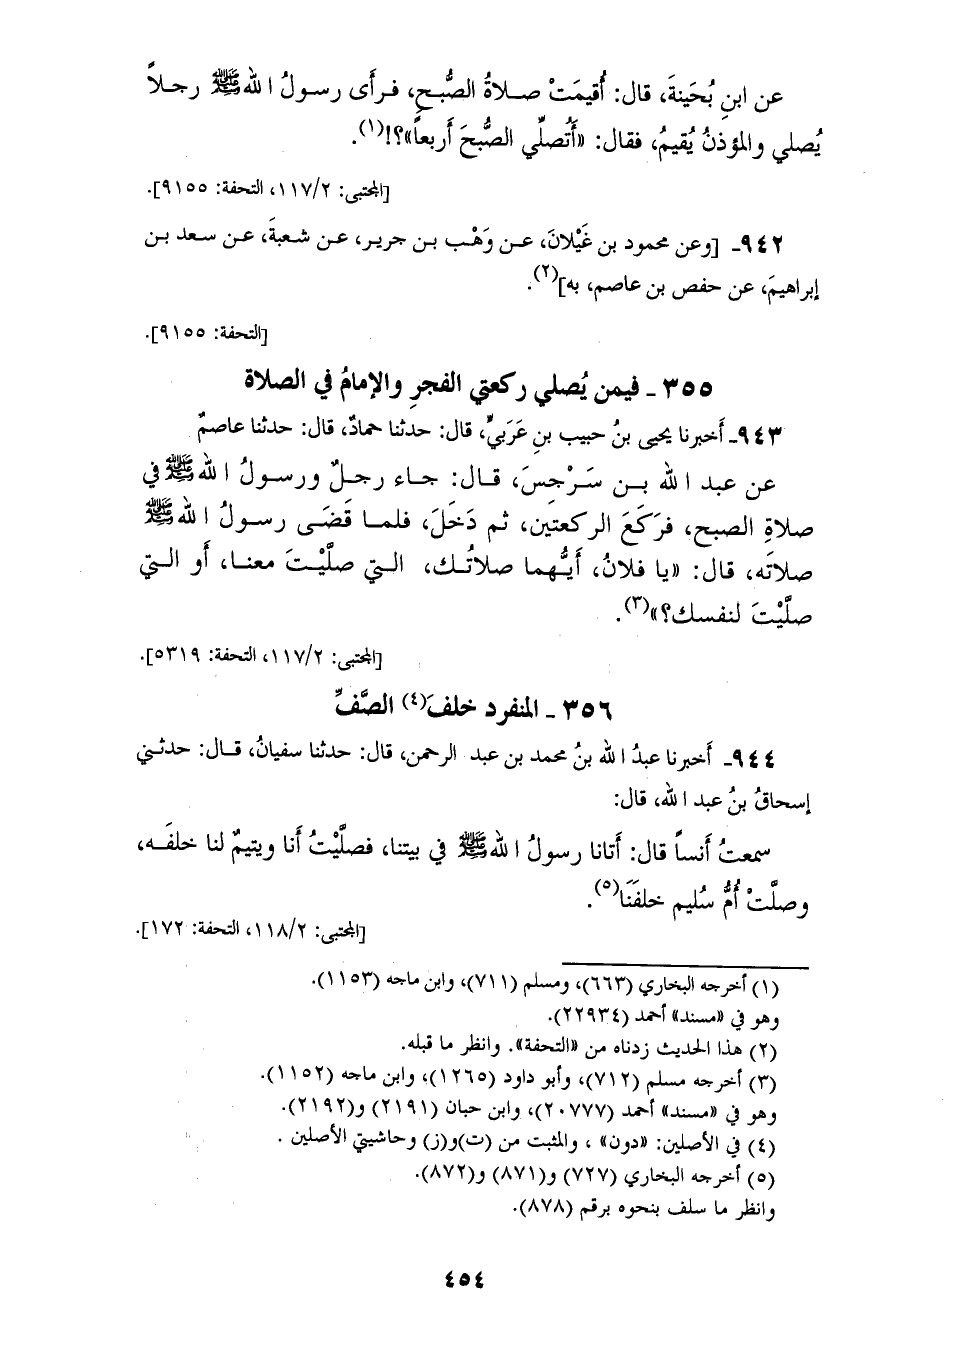 عن ابنِ بُحَينةَ، قال: أُقيمَتْ صلاةُ الصُّبحِ، فرأَى رسولُ الله ﷺ رجلاً
يُصلي والمؤذنُ يُقيمُ، فقال: «أَتُصلِّي الصُّبحَ أَربعاً»؟!(١).
[المجتبى: ١١٧/٢، التحفة: ٩١٥٥].
٩٤٢ـ [وعن محمود بن غَيْلانَ، عن وَهْب بن جرير، عن شعبةَ، عن سعد بن
إبراهيمَ، عن حفص بن عاصم، به](٢).
[التحفة: ٩١٥٥].
٣٥٥ ـ فيمن يُصلي ركعتي الفجرِ والإمامُ في الصلاة
٩٤٣ـ أَخبرنا يحيى بنُ حبيب بنِ عَرَبيٍّ، قال: حدثنا حمادٌ، قال: حدثنا عاصمٌ
عن عبد الله بن سَرْجسَ، قال: جاء رجلٌ ورسولُ الله ﷺ في
صلاةِ الصبح، فرَكَعَ الركعتين، ثم دَخَلَ، فلما قَضَى رسولُ الله ﷺ
صلاتَه، قال: «يا فلانُ، أَيُّهما صلاتُك، التي صلَّيْتَ معنا، أَو التي
صلَّيْتَ لنفسك؟»(٣).
[المجتبى: ١١٧/٢، التحفة: ٥٣١٩].
٣٥٦ ـ المنفرد خلفَ(٤) الصَّفِّ
٩٤٤ـ أَخبرنا عبدُ الله بنُ محمد بن عبد الرحمن، قال: حدثنا سفيانُ، قال: حدثني
إسحاقُ بنُ عبد الله، قال:
سمعتُ أَنساً قال: أَتانا رسولُ الله ﷺ في بيتنا، فصلَّيْتُ أَنا ويتيمٌ لنا خلفَه،
وصلَّتْ أُمُّ سُليم خلفَنَا(٥).
[المجتبى: ١١٨/٢، التحفة: ١٧٢].
(١) أخرجه البخاري (٦٦٣)، ومسلم (٧١١)، وابن ماجه (١١٥٣).
وهو في «مسند» أحمد (٢٢٩٣٤).
(٢) هذا الحديث زدناه من «التحفة». وانظر ما قبله.
(٣) أخرجه مسلم (٧١٢)، وأبو داود (١٢٦٥)، وابن ماجه (١١٥٢).
وهو في «مسند» أحمد (٢٠٧٧٧)، وابن حبان (٢١٩١) و(٢١٩٢).
(٤) في الأصلين: «دون» ، والمثبت من (ت)و(ز) وحاشيتي الأصلين .
(٥) أخرجه البخاري (٧٢٧) و(٨٧١) و(٨٧٢).
وانظر ما سلف بنحوه برقم (٨٧٨).
٤٥٤